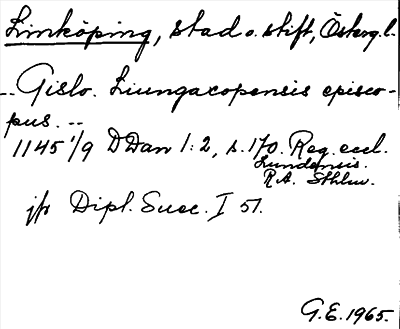 Linköping, stad o. stift, Österg. l.
-- Gislo. Liungacopensis episco-
pus. --
1145 1/9 DDan 1:2, s. 170. Reg. eccl.
Lundensis.
R.A. Sthlm.
jfr Dipl. Suec. I 51.
G.E. 1965.